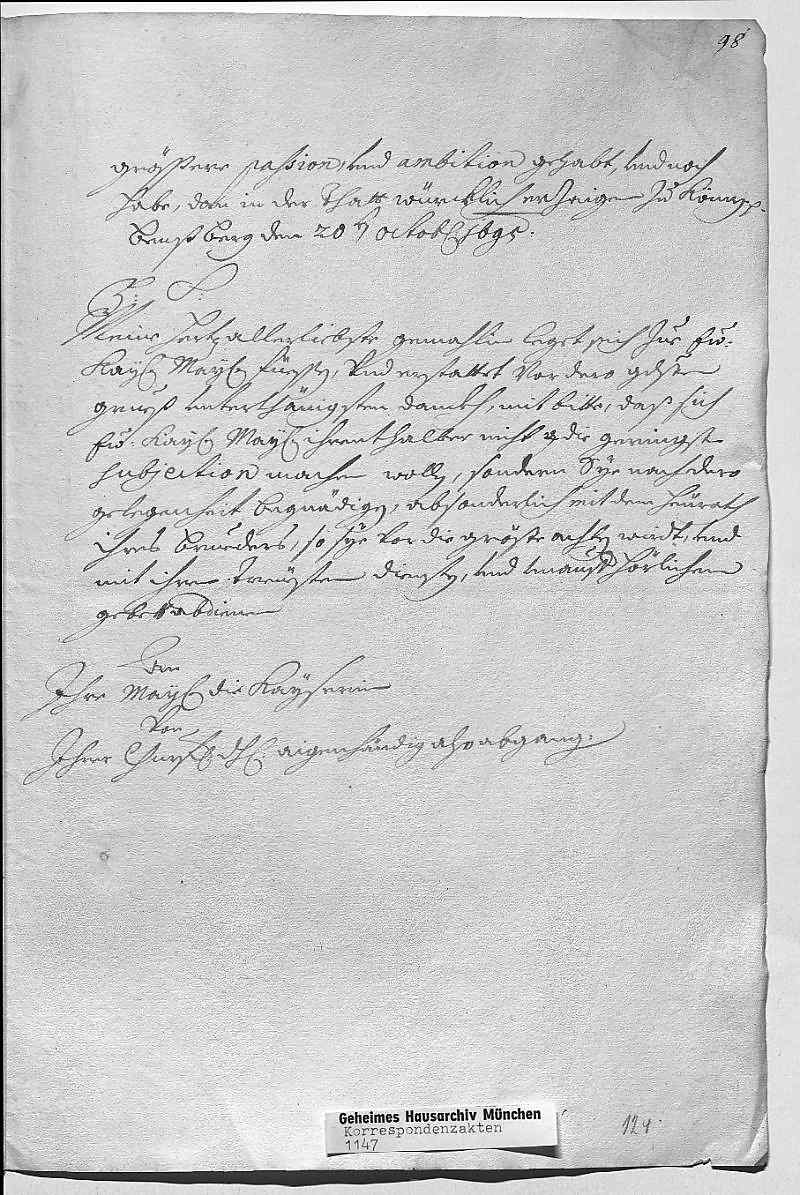 98
größere passion, und ambition gehabt, und noch
habe, dan in der That würcklich erzeigen zu können.
Benßberg den 20 octob 1695.
P: S:
Meine hertzallerliebste gemahlin leget sich zue Eu:
Kay May füessen, und erstattet vor dero gdsten
grueß unterthänigsten danckh, mit bitte, daß sich
Eu: Kay May ihrenthalber nicht die geringste
subjection machen wolle, sondern Sye nach dero
gelegenheit begnädigen, absonderlich mit dem heürath
ihres bruders, so sye vor die gröste achten wirdt, und
mit ihren treüesten diensten, und unaufhörlichem
gebett abdienen
An
Ihre May die Kayserin
Von
Ihrer Churf dhl: aigenhändig also abgang:
Geheimes Hausarchiv München
Korrespondenzakten
1147
124